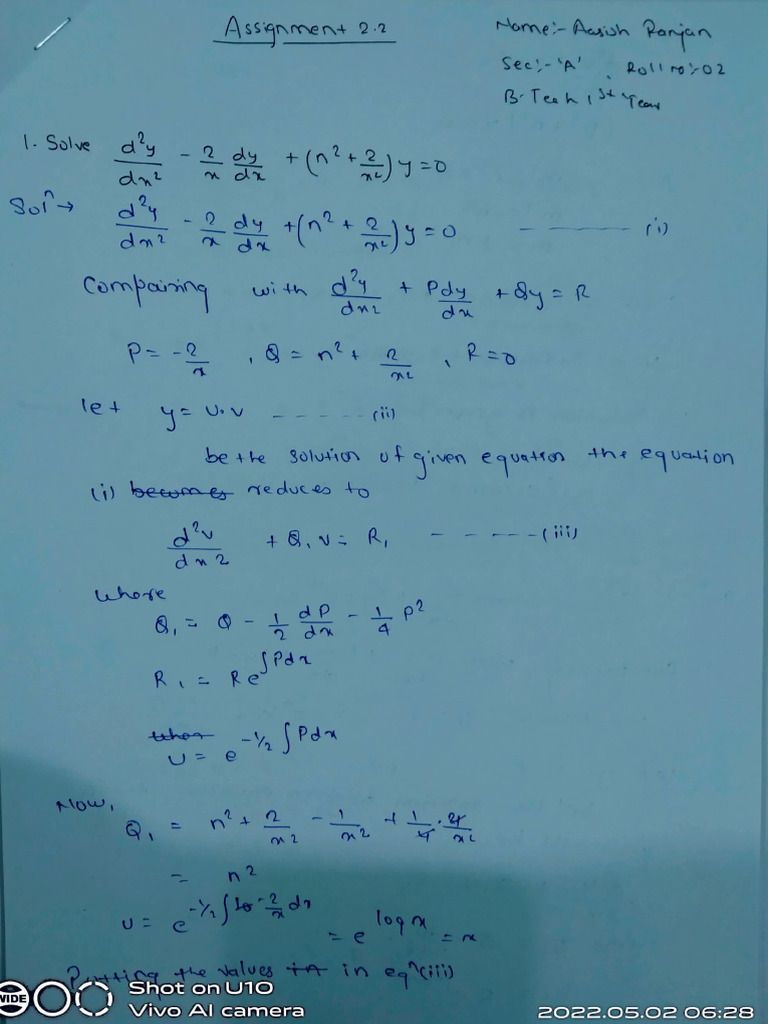 Assignment 2.2
Name:- Aasish Ranjan
Sec:- 'A' , Roll no:- 02
B.Tech 1st Year
1. Solve d²y/dx² - 2/x dy/dx + (n² + 2/x²) y = 0
Solⁿ → d²y/dx² - 2/x dy/dx + (n² + 2/x²) y = 0 ------- (i)
Compairing with d²y/dx² + Pdy/dx + Qy = R
P = -2/x , Q = n² + 2/x² , R = 0
let y = u.v ------ (ii)
be the solution of given equation the equation
(i) becomes reduces to
d²v/dx² + Q₁ v = R₁ ------ (iii)
where
Q₁ = Q - 1/2 dP/dx - 1/4 P²
R₁ = R e^∫Pdx
u = e^-1/2 ∫Pdx
Now,
Q₁ = n² + 2/x² - 1/x² + 1/4 · 4/x²
= n²
u = e^-1/2 ∫ -2/x dx = e^log x = x
Putting the values in in eqⁿ (iii)
WIDE
Shot on U10
Vivo AI camera
2022.05.02 06:28